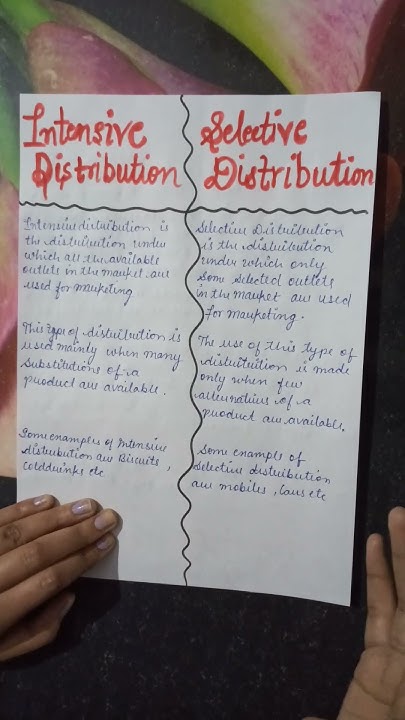 Intensive
Distribution
Intensive distribution is
the distribution under
which all the available
outlets in the market are
used for marketing.
This type of distribution is
used mainly when many
Substitutions of a
product are available.
Some examples of Intensive
distribution are Biscuits,
Colddrinks etc
Selective
Distribution
Selective Distribution
is the distribution
under which only
Some selected outlets
in the market are used
for marketing.
The use of this type of
distribution is made
only when few
alternatives of a
product are available.
Some example of
Selective distribution
are mobiles, Cars etc